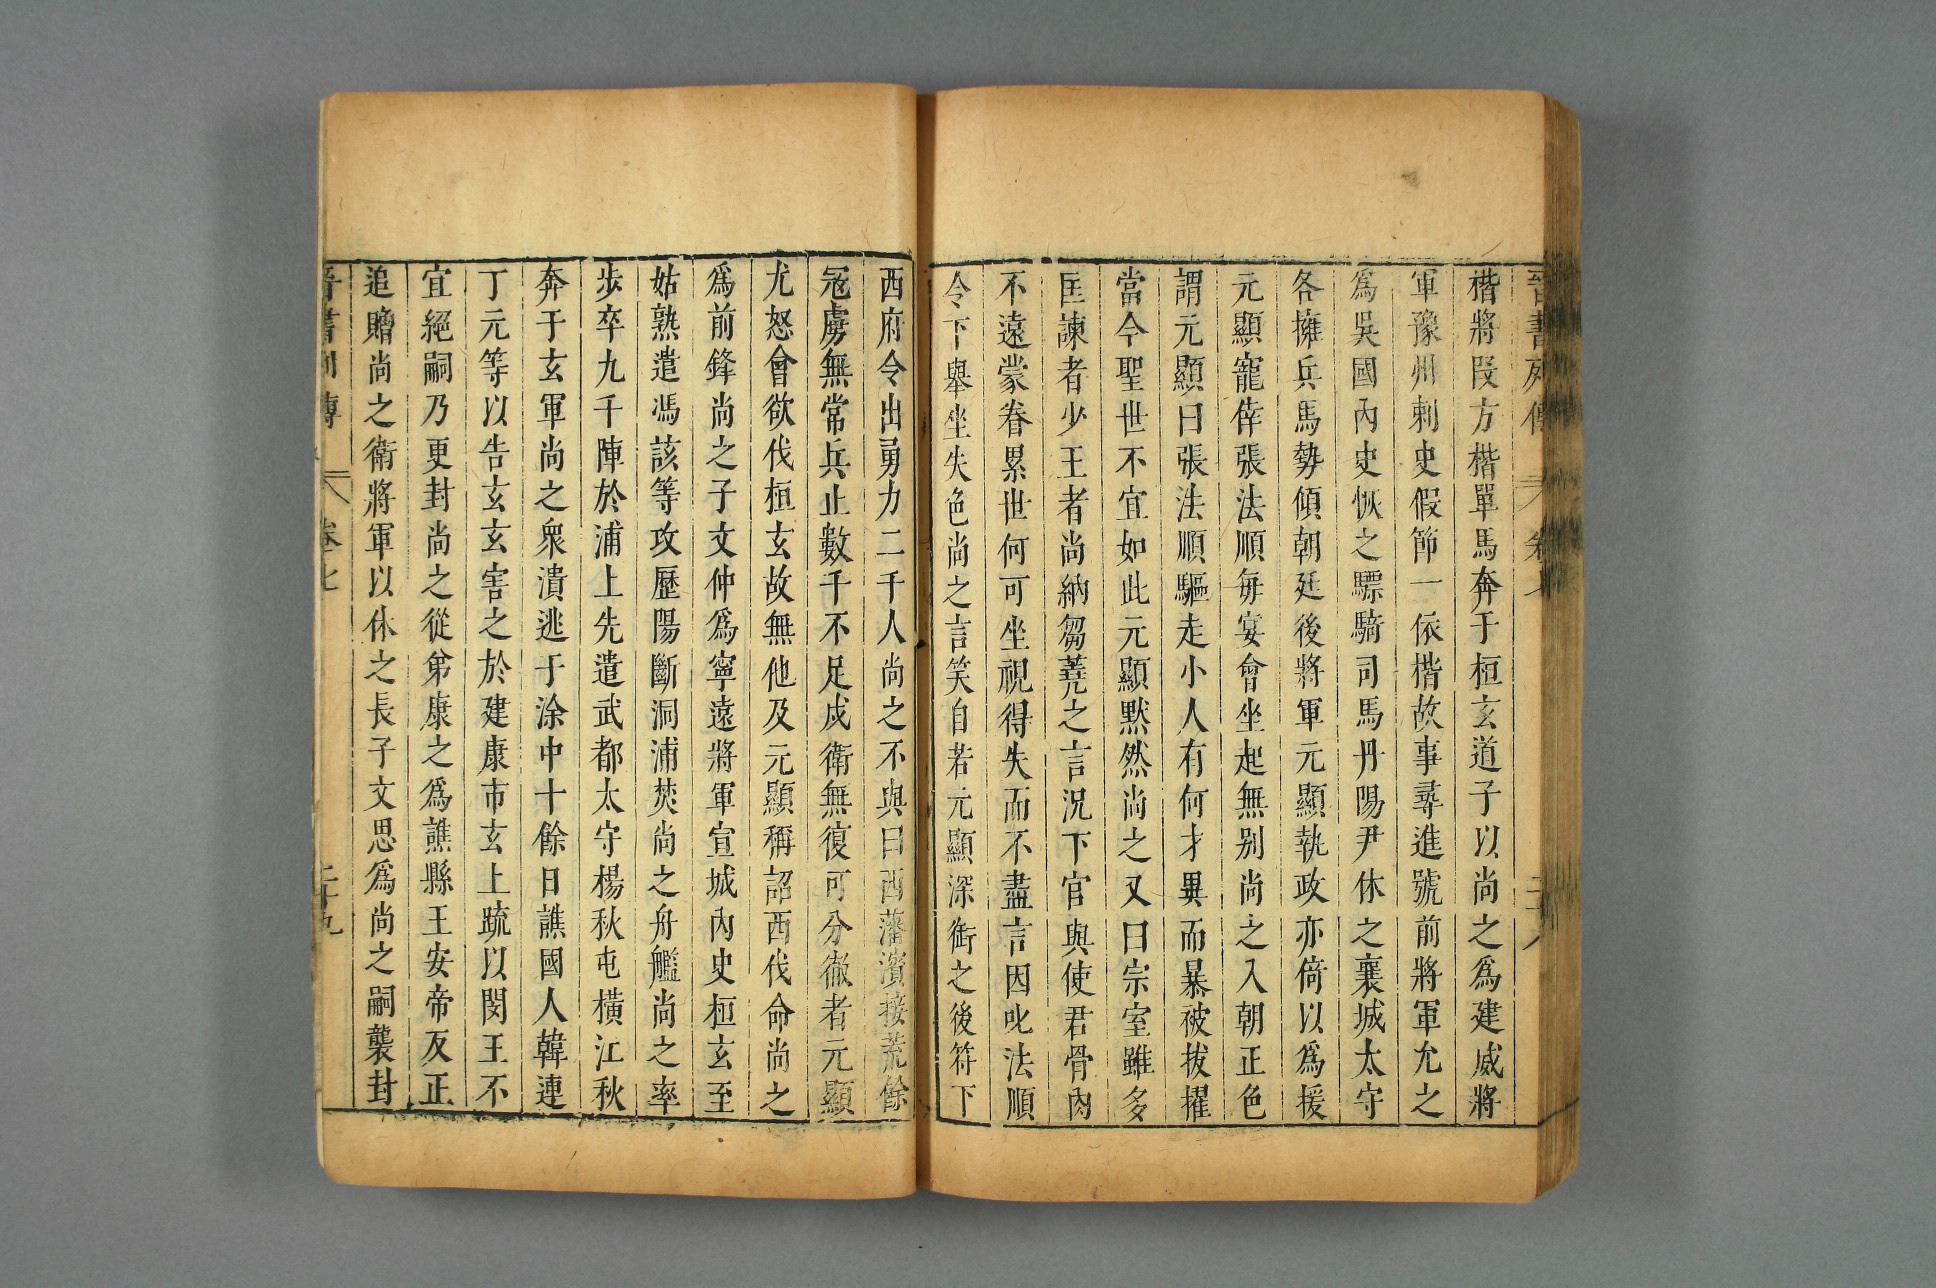 晉書列傳 卷七 二十八
楷將段方楷單馬奔于桓玄道子以尚之爲建威將
軍豫州刺史假節一依楷故事尋進號前將軍允之
爲吳國內史恢之驃騎司馬丹陽尹休之襄城太守
各擁兵馬勢傾朝廷後將軍元顯執政亦倚以爲援
元顯寵倖張法順每宴會坐起無别尚之入朝正色
謂元顯曰張法順驅走小人有何才異而暴被拔擢
當今聖世不宜如此元顯默然尚之又曰宗室雖多
匡諫者少王者尚納芻蕘之言況下官與使君骨肉
不遠蒙眷累世何可坐視得失而不盡言因叱法順
令下舉坐失色尚之言笑自若元顯深銜之後符下
西府令出勇力二千人尚之不與曰西藩濱接荒餘
冦虜無常兵止數千不足戍衛無復可分徹者元顯
尤怒會欲伐桓玄故無他及元顯稱詔西伐命尚之
爲前鋒尚之子文仲爲寧遠將軍宣城內史桓玄至
姑熟遣馮該等攻歷陽斷洞浦焚尚之舟艦尚之率
步卒九千陣於浦上先遣武都太守楊秋屯橫江秋
奔于玄軍尚之衆潰逃于涂中十餘日譙國人韓連
丁元等以告玄玄害之於建康市玄上䟽以閔王不
宜絕嗣乃更封尚之從弟康之爲譙縣王安帝反正
追贈尚之衛將軍以休之長子文思爲尚之嗣襲封
晉書列傳 卷七 二十九